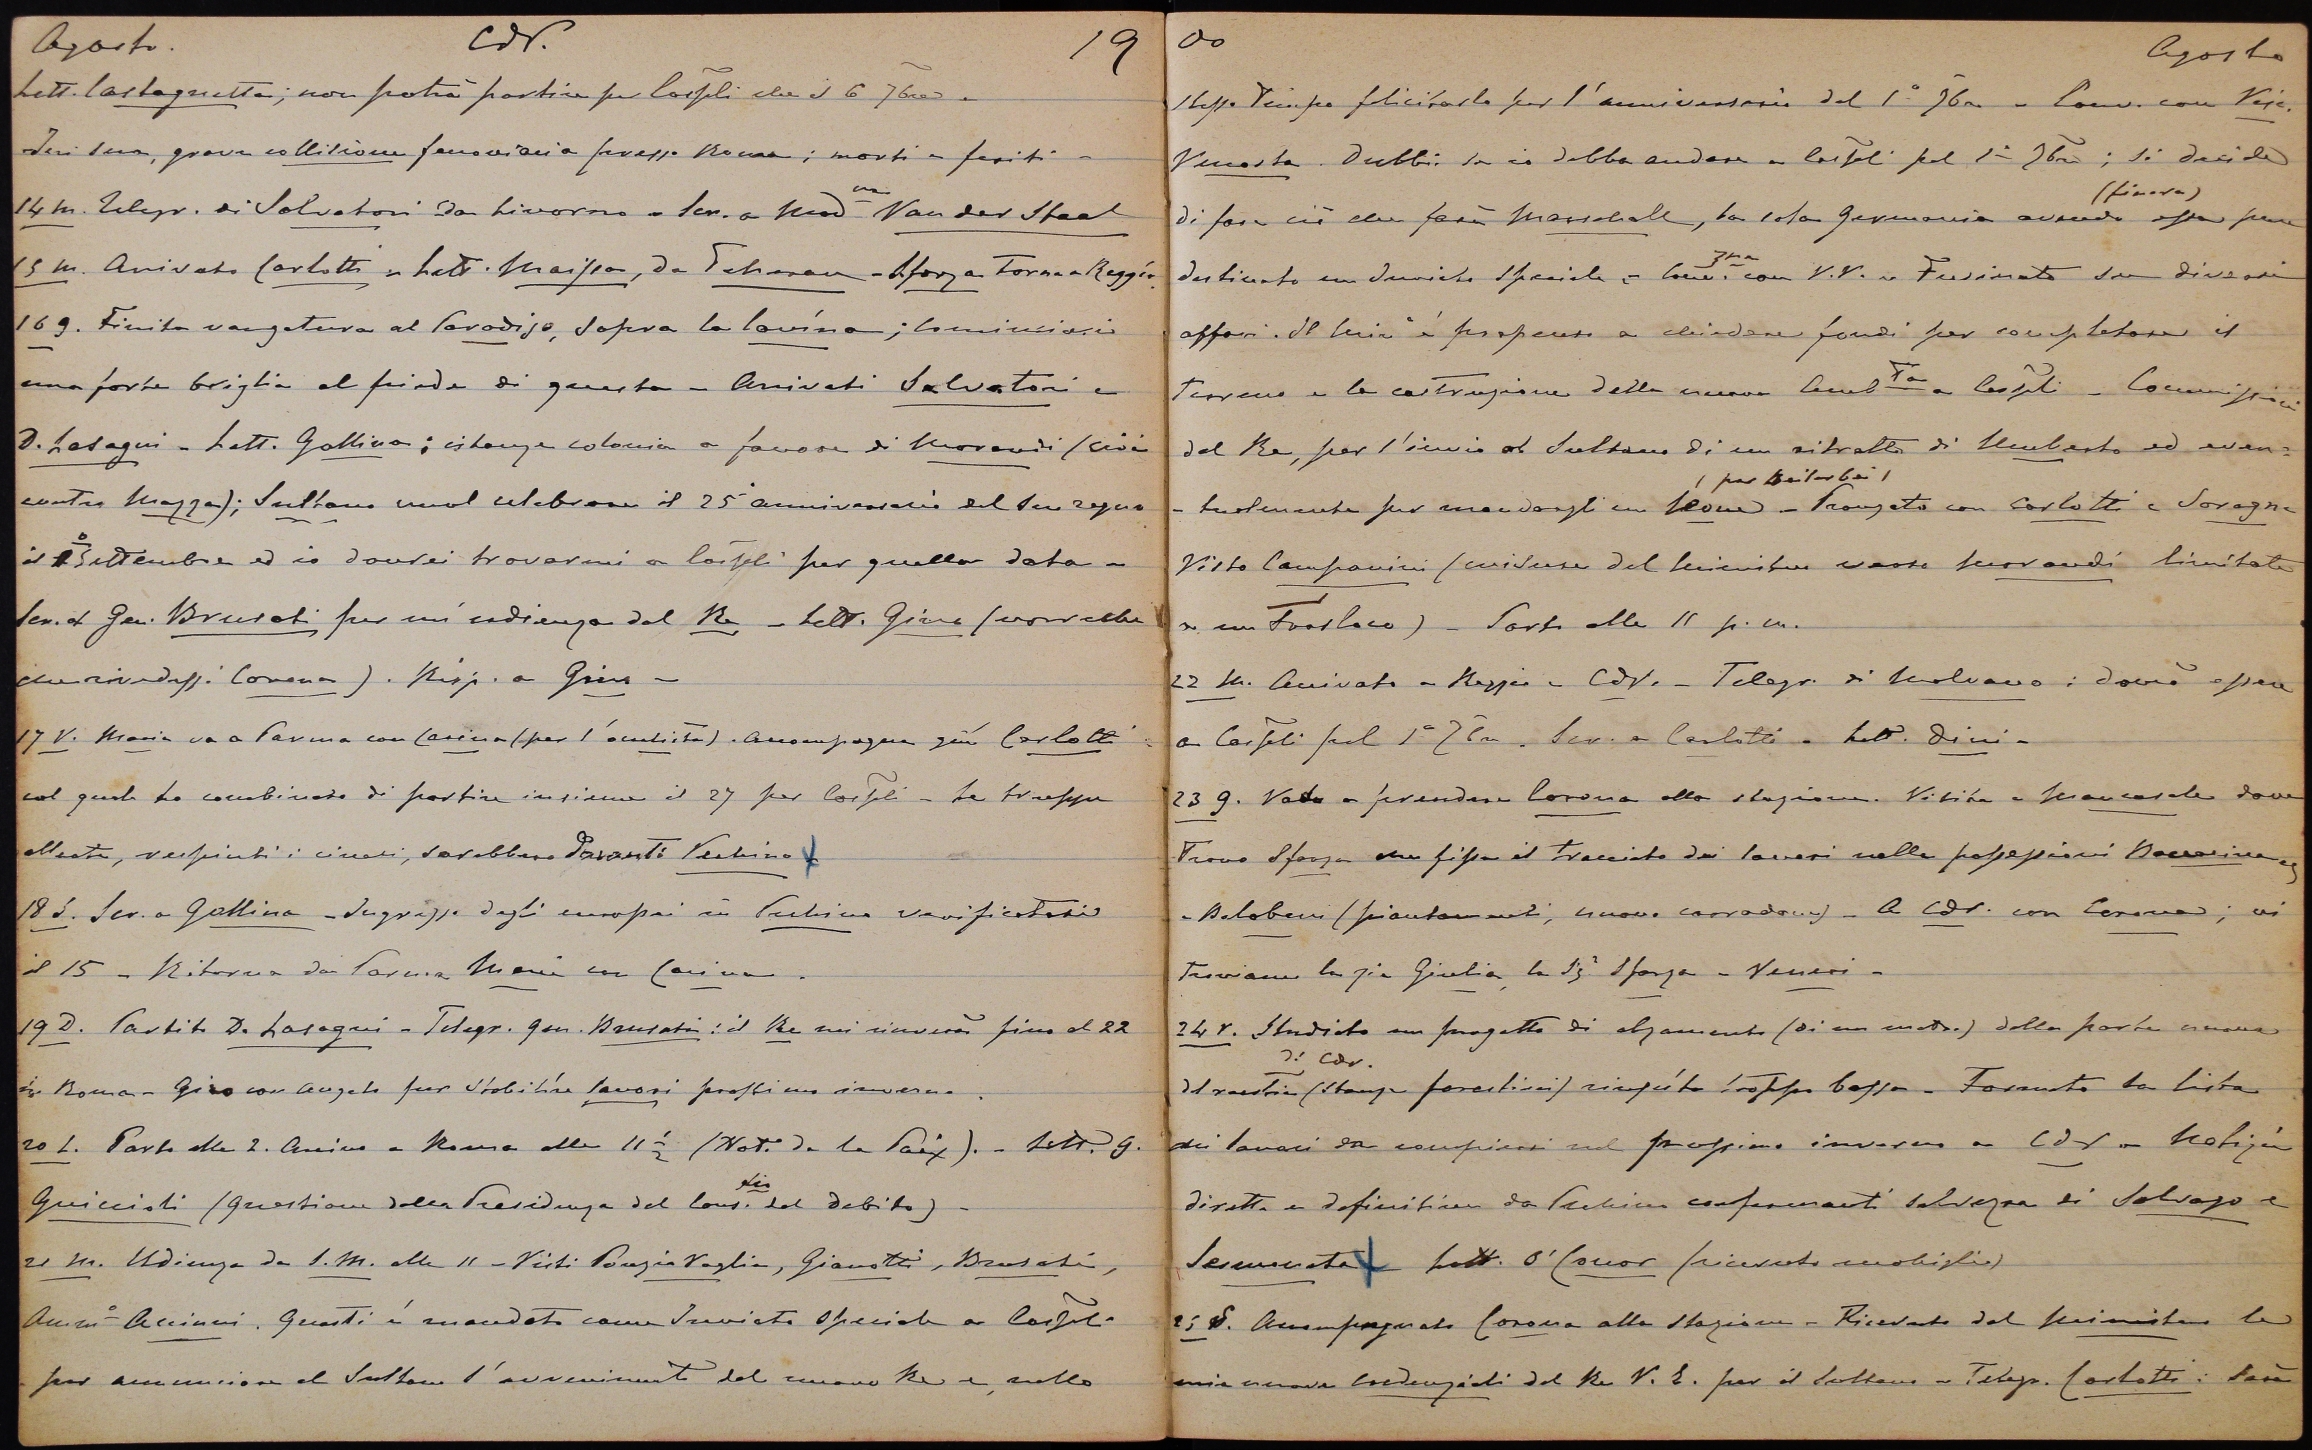 Agosto. CdV. 19
Lett. Castagnetta; non potrà partire per Cospli che il 6 7bre -
Ieri sera, grave collisione ferroviaria presso Roma; morti e feriti -
14 M. Telegr. di Salvatori da Livorno - Scr. a Mad.me Van der Staal
15 M. Arrivato Carlotti - Lett. Maissa, da Teheran - Sforza torna a Reggio.
16 G. Finita vangatura al Paradiso, sopra la lavina; cominciasi
una forte briglia al piede di questa - Arrivati Salvatori e
D. Lasagni - Lett. Gallina; istanze colonia a favore di Morandi (cioè
contro Mazza); Sultano vuol celebrare il 25° anniversario del suo regno
il 1° Settembre ed io dovrei trovarmi a Cospli per quella data -
Scr. al Gen. Brusati per un'udienza dal Re - Lett. Gina (vorrebbe
che rivedessi Corona). Risp. a Gina -
17 V. Maria va a Parma con Carina (per l'oculista). Accompagna giù Carlotti
col quale ho combinato di partire insieme il 27 per Cospli - Le truppe
alleate, respinti i cinesi, sarebbero davanti Pechino
18 S. Scr. a Gallina - Ingresso degli europei in Pechino verificatosi
il 15 - Ritorna da Parma Maria con Carina.
19 D. Partito D. Lasagni - Telegr. Gen. Brusati: il Re mi riceverà fino al 22
in Roma - Giro con Angelo per stabilire lavori prossimo inverno.
20 L. Parto alle 2. Arrivo a Roma alle 11 ½ (Hot. de la Paix). - Lett. G.
Guiccioli (questione della Presidenza del Cons.glio del Debito) -
21 M. Udienza da S.M. alle 11 - Visti Ponzio Vaglia, Gianotti, Brusati,
Amm.° Accinni. Questi è mandato come Inviato Speciale a Cospli
per annunciare al Sultano l'avvenimento del nuovo Re e, nello
00 Agosto
stesso tempo felicitarlo per l'anniversario del 1° 7bre - Conv. con Visc.
Venosta. Dubbi se io debba andare a Cospli pel 1° 7bre; si decide
di fare ciò che farà Marschall, la sola Germania avendo (finora) essa pure
destinato un Inviato speciale - Conv.zne con V.V. e Fusinato su diversi
affari. Il Min.° è propenso a chiedere fondi per completare il
terreno e la costruzione della nuova Amb.ta a Cospli - Commissioni
del Re, per l'invio al Sultano di un ritratto di Umberto ed even=
-tualmente per mandargli un leone (per Beilerbei) - Pranzato con Carlotti e Soragna
Visto Campanini (misure del Ministero verso Morandi limitate
a un trasloco) - Parto alle 11 p.m.
22 M. Arrivato a Reggio - CdV. - Telegr. di Malvano: dovrò essere
a Cospli pel 1° 7bre. Scr. a Carlotti - Lett. Dini -
23 G. Vado a prendere Corona alla stazione. Visita a Mancasale dove
trovo Sforza che fissa il tracciato dei lavori nelle possessioni
(piantamenti, nuove carradone) - A CdV. con Corona; vi
troviamo la zia Giulia, la Sig.a Sforza e Veneri -
24 V. Studiato un progetto di alzamento (di un metro) della parte nuova
del rustico di CdV. (stanze forestieri) riuscita troppo bassa - Formato la lista
dei lavori da compiersi nel prossimo inverno a CdV - Notizie
dirette e definitive da Pechino confermanti salvezza di Salvago e
Semenuta Lett. O'Conor (ricevuto mobiglio)
25 S. Accompagnato Corona alla stazione - Ricevuto dal Ministero le
mie nuove credenziali del Re V.E. per il Sultano - Telegr. Carlotti: sarà